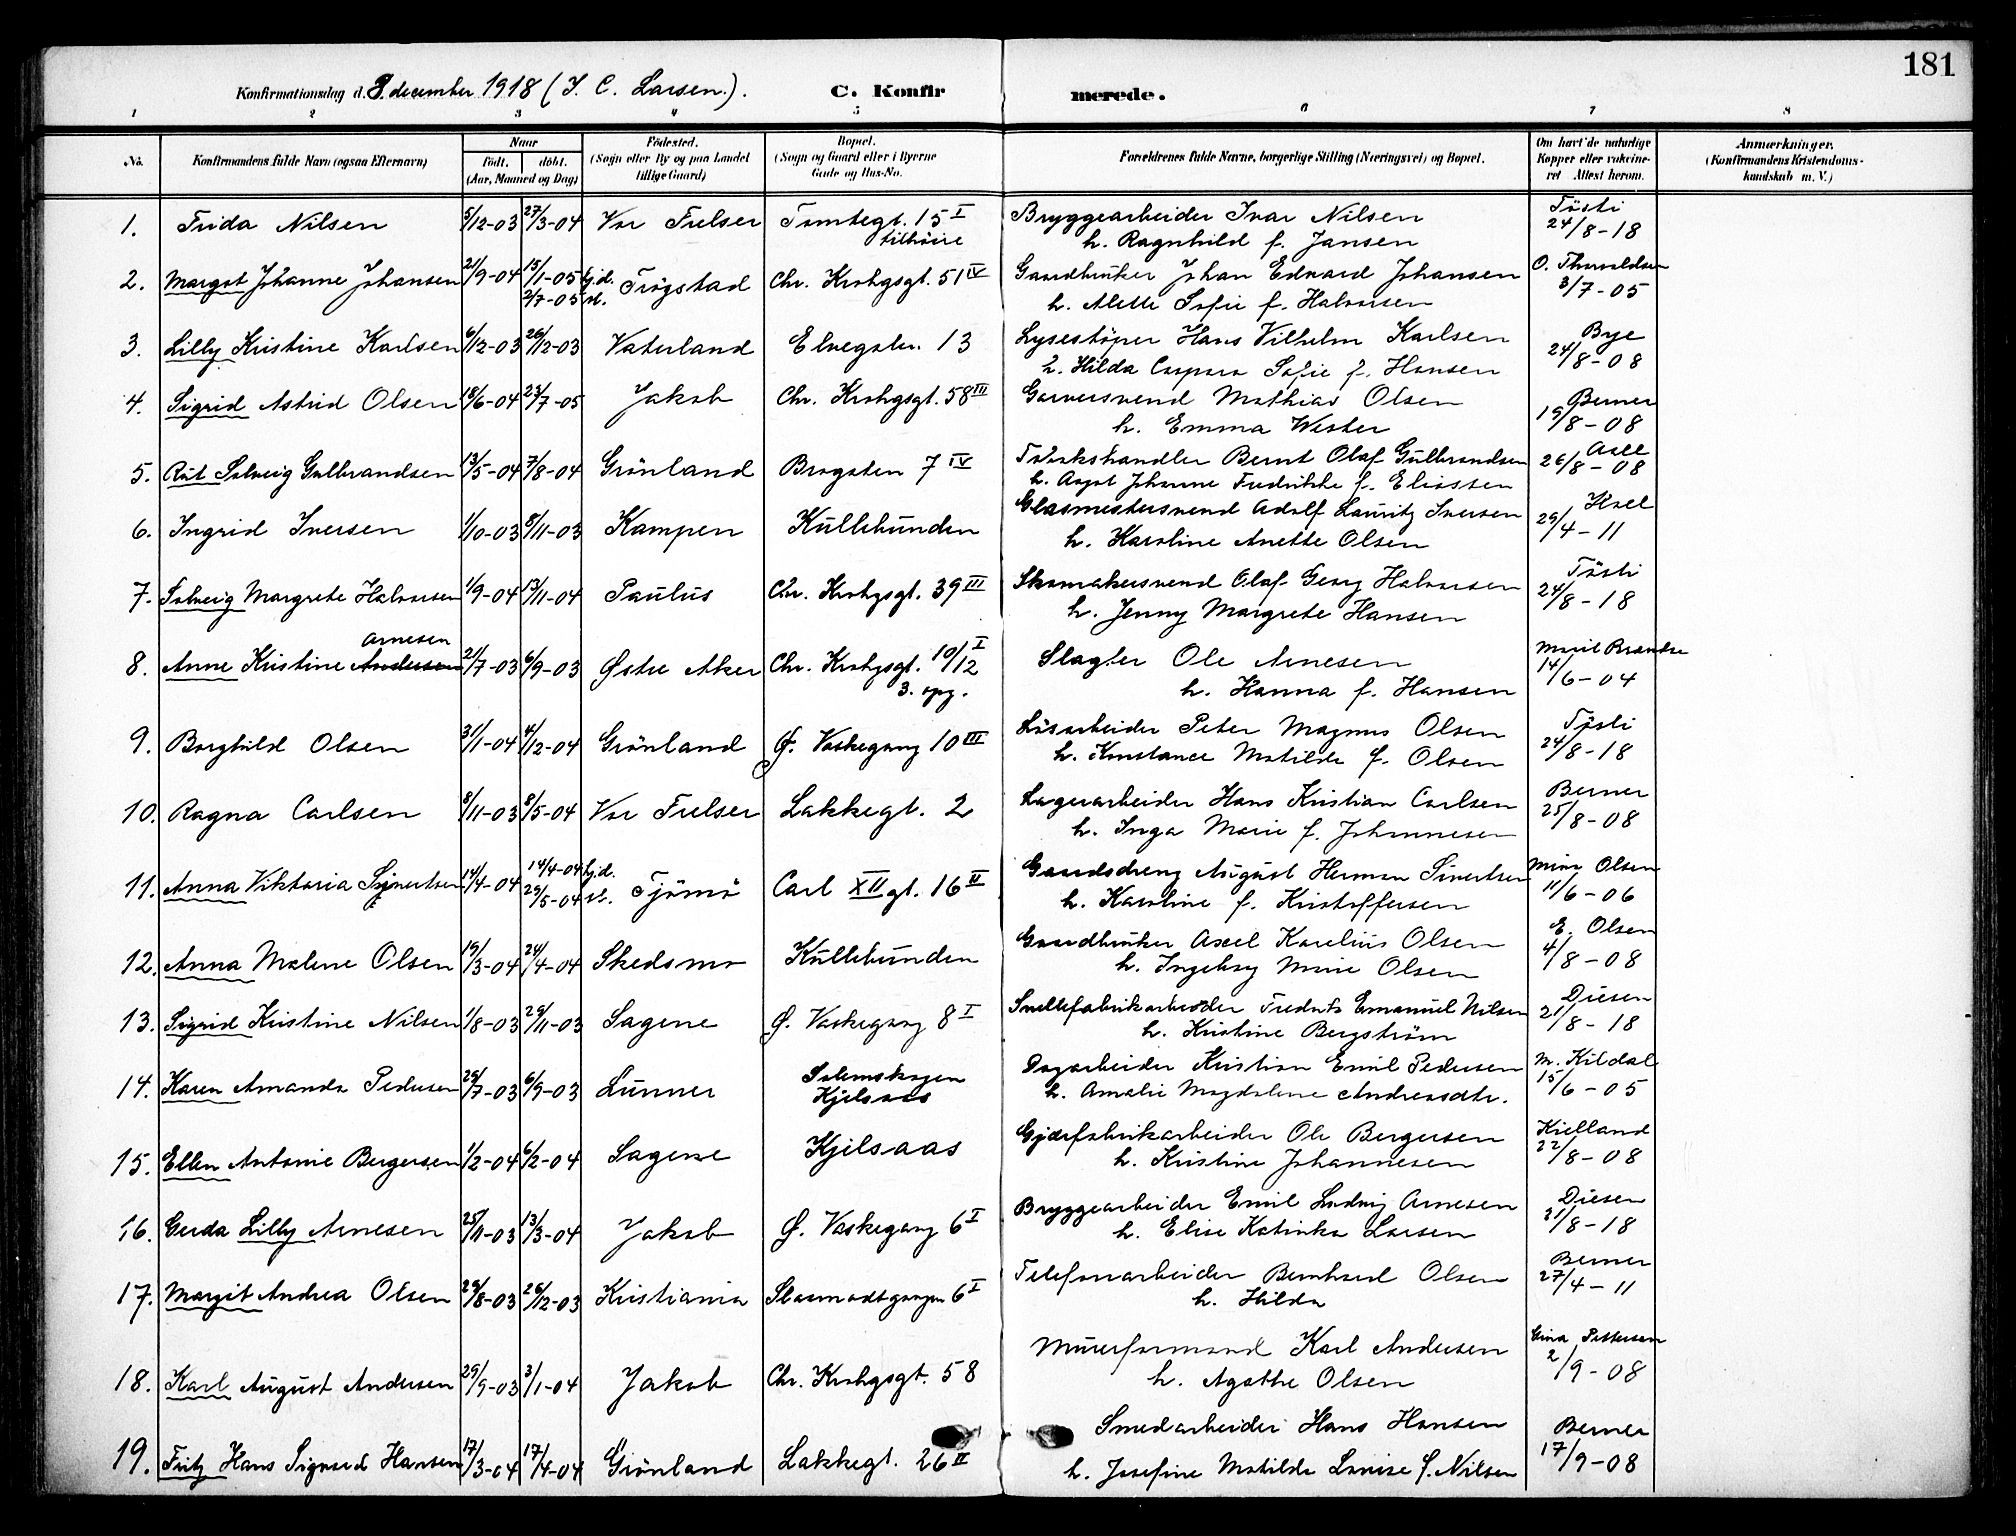 181
Konfirmationsdag d. 8. december 1918 (I. C. Larsen.). C. Konfir merede.
1 2 3 4 5 6 7 8
No. Konfirmandens fulde Navn (ogsaa Efternavn) Naar født. døbt. (Aar, Maaned og Dag) Fødested. (Sogn eller By og paa Landet tillige Gaard) Bopæl. (Sogn og Gaard eller i Byerne Gade og Hus-No. Forældrenes fulde Navne, borgerlige Stilling (Næringsvei) og Bopæl. Om havt de naturlige Kopper eller vakcineret. Attest herom. Anmærkninger. (Konfirmandens Kristendomskundskab m. V.)
1. Frida Nilsen 5/12-03 27/3-04 Vor Frelser Tomtegt. 15 I Bryggearbeider Ivar Nilsen Tösti
tilhöire h. Ragnhild f. Jansen 24/8-18
2. Margot Johanne Johansen 21/9-04 15/1-05 hj.d. Trögstad Chr. Krohgsgt. 51 IV Gaardbruker Johan Edvard Johansen O. Thorvaldsen
2/7-05 st. h. Alette Sofie f. Halvorsen 3/7-05
3. Lilly Kristine Karlsen 6/12-03 26/12-03 Vaterland Elvegaten 13 Lysestöper Hans Vilhelm Karlsen Bye
h. Hilda Caspara Sofie f. Hansen 24/8-08
4. Sigrid Astrid Olsen 18/6-04 23/7-05 Jakob Chr. Krohgsgt. 58 III Garversvend Mathias Olsen Berner
h. Emma Wester 19/8-08
5. Rut Solveig Gulbrandsen 13/5-04 7/8-04 Grönland Brogaten 7 IV Bernt Olaf Gulbrandsen Asell
h. Aagot Johanne Fredrikke f. Eliassen 26/8-08
6. Ingrid Iversen 1/10-03 8/11-03 Kampen Kullebunden Glasmestersvend Adolf Lauritz Iversen Hoel
h. Karoline Anette Olsen 29/4-11
7. Solveig Margrete Halvorsen 1/9-04 13/11-04 Paulus Chr. Krohgsgt. 39 III Skomakersvend Olaf Georg Halvorsen Tösti
h. Jenny Margrete Hansen 24/8-18
Arnesen
8. Anne Kristine Andersen 21/7-03 6/9-03 Østre Aker Chr. Krohgsgt. 10/12 I Slagter Ole Arnesen Brandse
3. opg. h. Hanna f. Hansen 14/6-04
9. Borghild Olsen 31/1-04 4/12-04 Grönland Ø. Vaskegang 10 III Lösarbeider Peter Magnus Olsen Tösti
h. Konstance Matilde f. Olsen 24/8-18
10. Ragna Carlsen 8/11-03 8/5-04 Vor Frelser Lakkegt. 2 Lagerarbeider Hans Kristian Carlsen Berner
h. Inga Marie f. Johannesen 25/8-08
11. Anna Viktoria Sivertsen 14/4-04 14/4-04 hj.d. Tjömö Carl XII gt. 16 II Gaardsdreng August Herman Sivertsen Mine Olsen
29/5-04 st. h. Karoline f. Kristoffersen 11/6-06
12. Anna Malene Olsen 19/3-04 24/4-04 Skedsmo Kullebunden Gaardbruker Axel Karelius Olsen E. Olsen
h. Ingeborg Marie Olsen 4/8-08
13. Sigrid Kristine Nilsen 1/8-03 29/11-03 Sagene Ø. Vaskegang 8 I Snellefabrikarbeider Fredrik Emanuel Nilsen Diesen
h. Kristine Bergström 21/8-18
14. Karen Amanda Pedersen 29/7-03 6/9-03 Lunner Solemskogen Dagarbeider Kristian Emil Pedersen M. Kildal
Kjelsaas h. Amalie Magdalene Andreasdtr. 15/6-05
15. Ellen Antonie Bergersen 1/2-04 6/2-04 Sagene Kjelsaas Gjærfabrikarbeider Ole Bergersen Kielland
h. Kristine Johannesen 22/8-08
16. Gerda Lilly Arnesen 25/11-03 13/3-04 Jakob Ø. Vaskegang 6 I Bryggearbeider Emil Ludvig Arnesen Diesen
h. Elise Katinka Larsen 21/8-18
17. Margit Andrea Olsen 29/8-03 26/12-03 Kristiania 6 I Telefonarbeider Bernhard Olsen Berner
h. Hilda 27/4-11
18. Karl August Andersen 29/9-03 3/1-04 Jakob Chr. Krohgsgt. 58 Murerformand Karl Andersen Gina Pettersen
h. Agathe Olsen 2/9-08
19. Fritz Hans Sigvard Hansen 17/3-04 17/4-04 Grönland Lakkegt. 26 II Smedarbeider Hans Hansen Berner
h. Josefine Matilde Lovise f. Nilsen 17/9-08